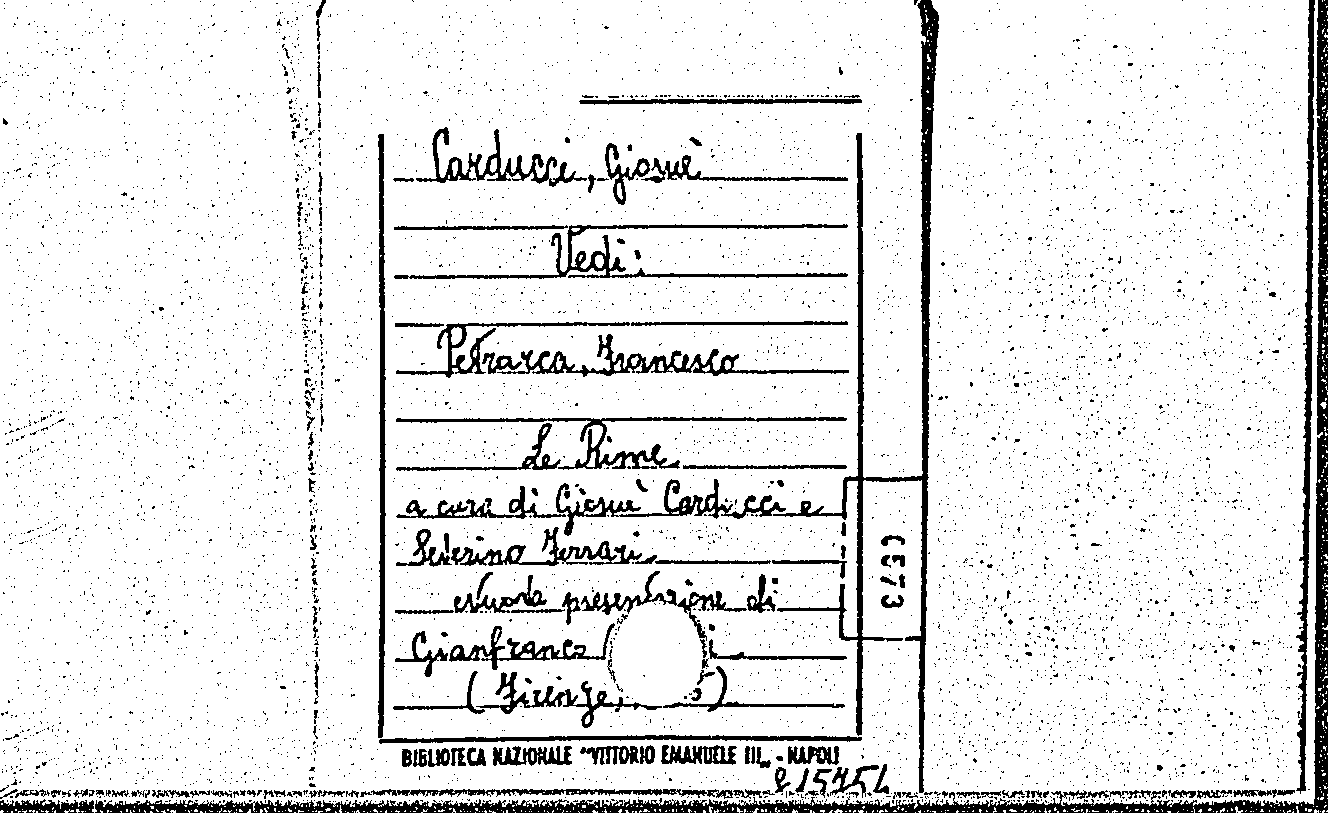 Carducci, Giosuè
Vedi:
Petrarca, Francesco
Le Rime.
a cura di Giosuè Carducci e
Severino Ferrari.
Nuova presentazione di
(Firenze,
BIBLIOTECA NAZIONALE "VITTORIO EMANUELE III„ - NAPOLI